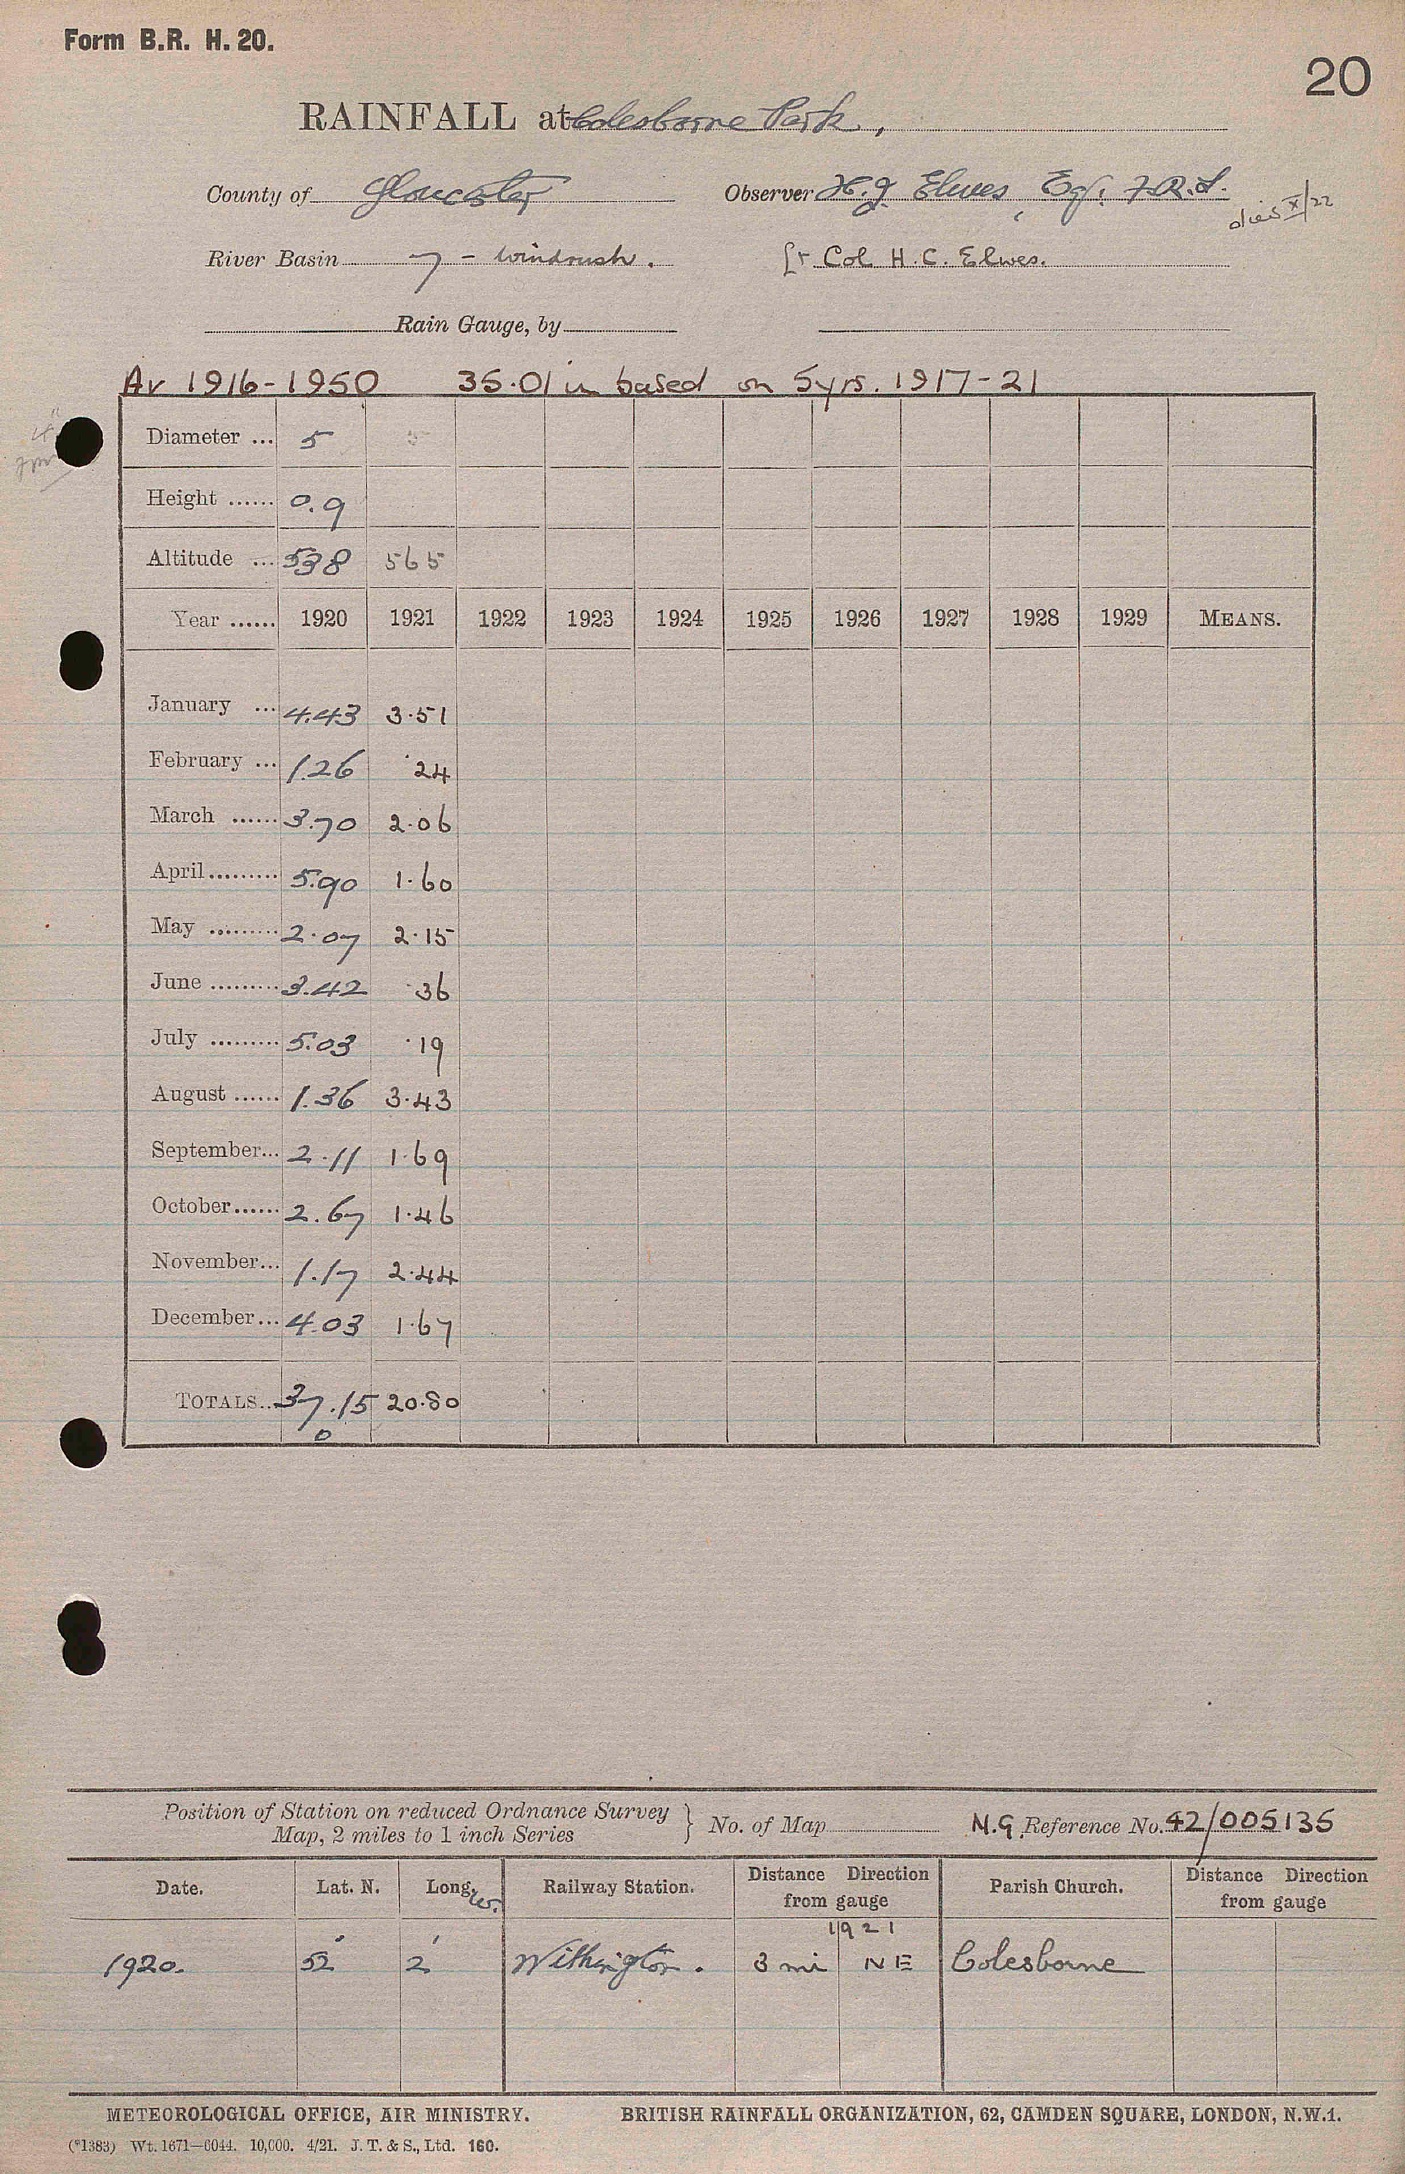 Form B.R. H. 20.
20
RAINFALL at Colesborne Park,
County of Gloucester Observer H. J. Elwes, Esq. F.R.S. died X/22
River Basin 7 - Windrush. Lt Col H. C. Elwes.
Rain Gauge, by
Av 1916-1950 35.01 in based on 5 yrs. 1917-21
Diameter ... 5 5
4"
Height ...... 0.9
Altitude ... 538 565
Year ...... 1920 1921 1922 1923 1924 1925 1926 1927 1928 1929 MEANS.
January ... 4.43 3.51
February ... 1.26 .24
March ...... 3.70 2.06
April ......... 5.90 1.60
May ......... 2.07 2.15
June ......... 3.42 .36
July ......... 5.03 .19
August ...... 1.36 3.43
September... 2.11 1.69
October...... 2.67 1.46
November... 1.17 2.44
December... 4.03 1.67
TOTALS.. 37.15 20.80
0
Position of Station on reduced Ordnance Survey
Map, 2 miles to 1 inch Series } No. of Map N.G. Reference No. 42/005135
Date. Lat. N. Long. W. Railway Station. Distance Direction from gauge Parish Church. Distance Direction from gauge
1921
1920. 52° 2' Withington. 3 mi NE Colesborne
METEOROLOGICAL OFFICE, AIR MINISTRY. BRITISH RAINFALL ORGANIZATION, 62, CAMDEN SQUARE, LONDON, N.W.1.
(*1383) Wt. 1671—6044. 10,000. 4/21. J. T. & S., Ltd. 160.